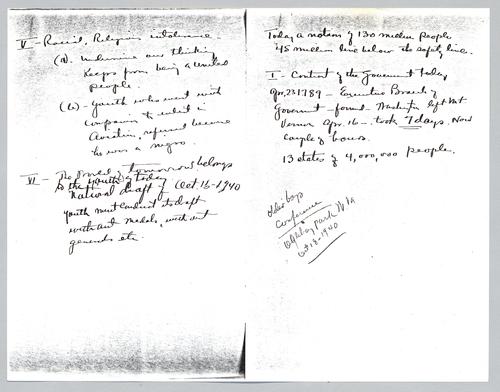 V - Racial, Religious intolerance
(a). Undermine our thinking
Keeps from being a united
people.
(b) - youth who went with
companion to enlist in
Aviation, refused because
he was a negro.
VI - The world of tomorrow belongs
to the youth of today
National draft of Oct. 16 - 1940
youth must conduct its draft
without medals, without
generals etc.
Today a nation of 130 million people
45 million live below the safety line.
I - Content of the Government today
Apr. 23 1789 - Executive Branch of
Goverment - found - Washington left Mt
Vernon Apr. 16 - took 7 days. Now
couple of hours.
13 states of 4,000,000 people.
Older boys
Conference
Park W. Va
Oct 18 - 1940